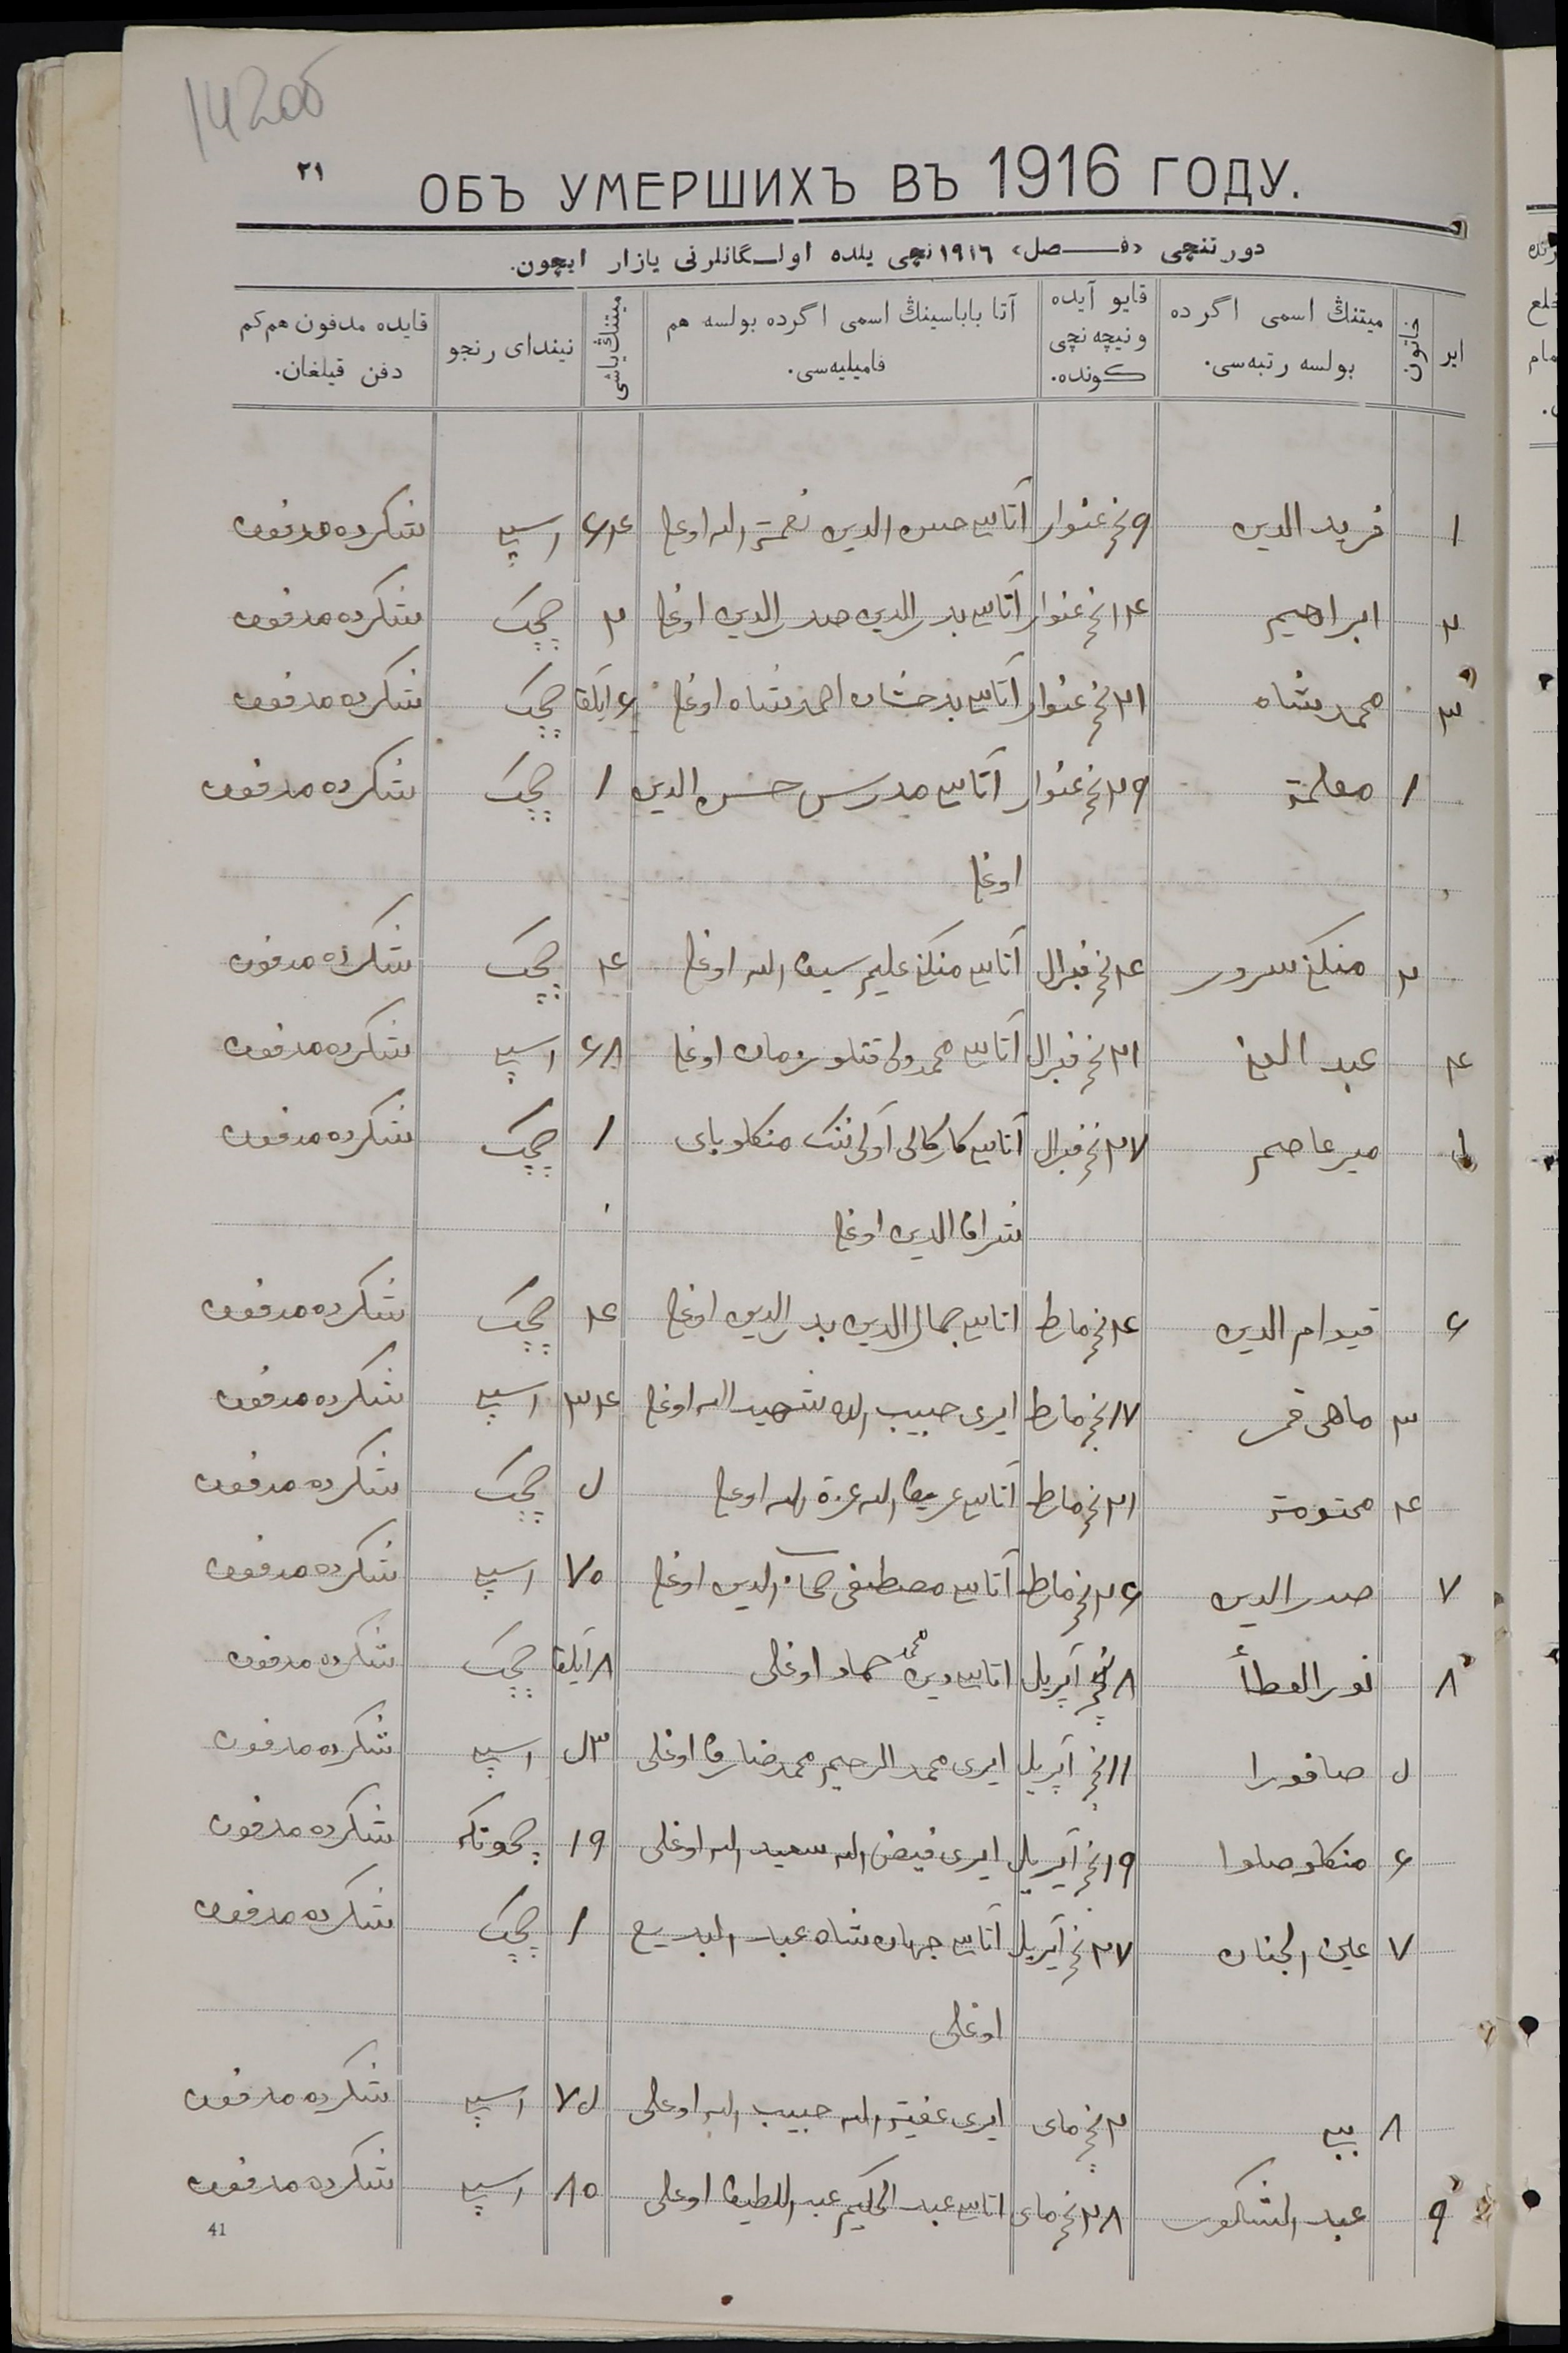 142об
٢١
ОБЪ УМЕРШИХЪ ВЪ 1916 ГОДУ.
دورتنچی «فـصل» ١٩١٦نچی یلده اولـگانلرنی یازار ایچون.
ایر
خاتون
میتنڭ اسمی اگرده بولسه رتبه‌سی.
قایو آیده ونیچه نچی كونده.
آتا باباسینڭ اسمی اگرده بولسه هم فامیلیه‌سی.
میتنڭ یاشی
نیندای رنجو
قایده مدفون هم كم دفن قیلغان.
١ فرید الدین ٩نچی غنوار آتاسی حسن الدین نعمة الله اوغلی ٦٤ اسپی شكرده مدفون
٢ ابراهیم ١٤نچی غنوار آتاسی بدر الدین صدر الدین اوغلی ٢ چچك شكرده مدفون
٣ محمدشاه ٢١نچی غنوار آتاسی بدخشان احمدشاه اوغلی ٦ آیلقا چچك شكرده مدفون
١ معلمة ٢٩نچی غنوار آتاسی مدرس حسن الدین ١ چچك شكرده مدفون
اوغلی
٢ منكلی سرور ٤نچی فبرال آتاسی منكلی علیم سیف الله اوغلی ٤ چچك شكرده مدفون
٤ عبد الغنی ٢١نچی فبرال آتاسی محمدولی قتلوزمان اوغلی ٦٨ اسپی شكرده مدفون
میرعاصم ٢٧نچی فبرال آتاسی كاركالی آولی ننك منكلوبای ١ چچك شكرده مدفون
شراف الدین اوغلی
٦ قیوام الدین ٤نچی مارط اتاسی جمال الدین بدر الدین اوغلی ٤ چچك شكرده مدفون
٣ ماهی قمر ١٧نچی مارط ایری حبیب الله شهید الله اوغلی ٣٤ اسپی شكرده مدفون
٤ مختومة ٢١نچی مارط آتاسی عریف الله عزة الله اوغلی ٥ چچك شكرده مدفون
٧ صدر الدین ٢٦نچی مارط آتاسی مصطفی الدین اوغلی ٧٥ اسپی شكرده مدفون
٨ نور العطأ ٨نچی آپریل اتاسی دین محمد حماد اوغلی ٨ آیلقا چچك شكرده مدفون
٥ صافورا ١١نچی آپریل ایری محمد الرحیم محمدضارف اوغلی ٣٥ اسپی شكرده مدفون
٦ منكلوصلوا ١٩نچی آپریل ایری فیض الله سعید الله اوغلی ١٩ چحوتكه شكرده مدفون
٧ عین الجنان ٢٧نچی آپریل آتاسی جهان شاه عبد البدیع ١ چچك شكرده مدفون
اوغلی
٨ بیبی ٢نچی مای ایری عفیة الله حبیب الله اوغلی ٧٥ اسپی شكرده مدفون
٩ عبد الشكور ٢٨نچی مای اتاسی عبد الحكیم عبد اللطیف اوغلی ٨٥ اسپی شكرده مدفون
41